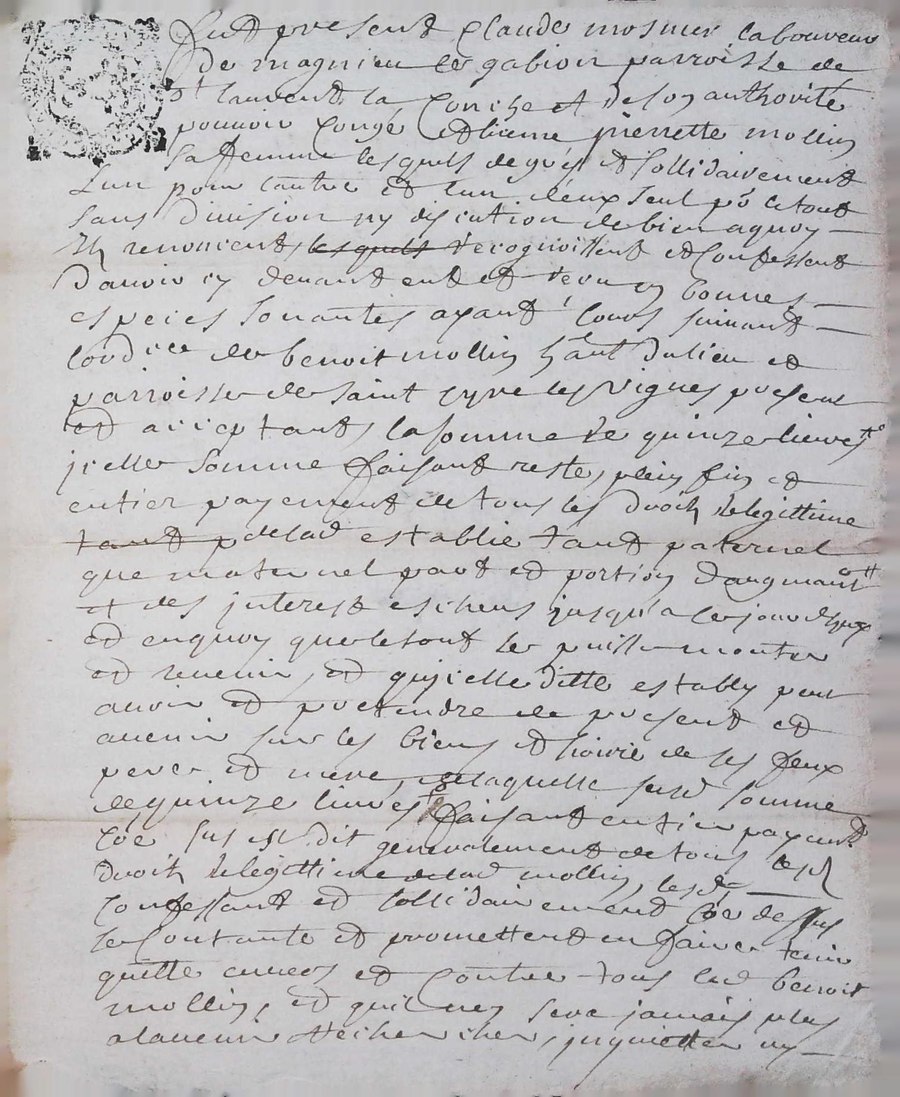 Fut present Claude mosnier laboureur
de magnieu le gabion parroisse de
st laurent la Conche et de son authorité
pouvoir Congé et licence pierrette mollin
sa femme lesquels de gré et sollidairement
Lun pour lautre et lun deux seul po le tout
sans division ny discution de bien aquoy
Ils renoncent, lesquels recognoissent et Confessent
Davoir cy devant eut et receu en bonnes
especes sonantes ayant Cours suivant
loudice de benoit mollin hant du lieu et
parroisse de saint cyre les Vignes present
et acceptant, la somme de quinze livres
jcelle somme faisant reste, plein fin et
entier payement de tous les droits de legittime
tant p de lad establie tant paternel
que maternel part et portion daugmant
et des interest escheus jusqu'a ce jourdhuy
et en quoy que le tout se puisse monter
et revenir, et qu'jcelle ditte establye peut
avoir et pretendre de present et
avenir sur les biens et hoirie de ses feux
pere et mere, de laquelle susd somme
de quinze livres faisant entier payemt
Coe sus est dit generalement de tous lesd
droits de legittime de lad mollin, lesd
Confessant et sollidairement Coe dessus
se Contante et promettent en faire tenir
quitte envers et Contre tous led benoit
mollin, et quil nen sera jamais plus
alavenir rechercher, jnquietter ny